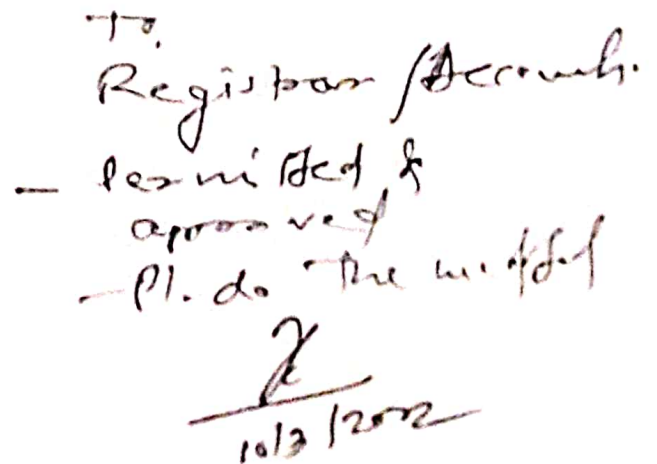 To,
Registrar / Accounts.
- Permitted &
approved
- Pl. do the needful
10/3/2022